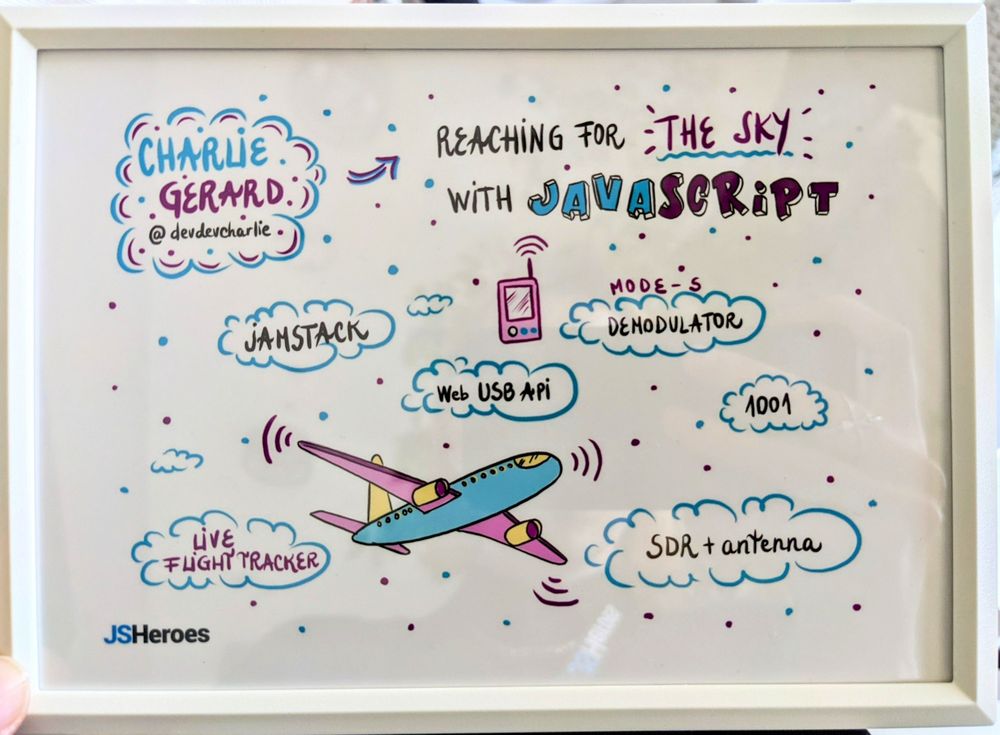 CHARLIE
GERARD
@devdevcharlie
REACHING FOR THE SKY
WITH JAVASCRIPT
MODE-S
DEMODULATOR
JAMSTACK
Web USB Api
1001
LIVE
FLIGHT TRACKER
SDR + antenna
JSHeroes